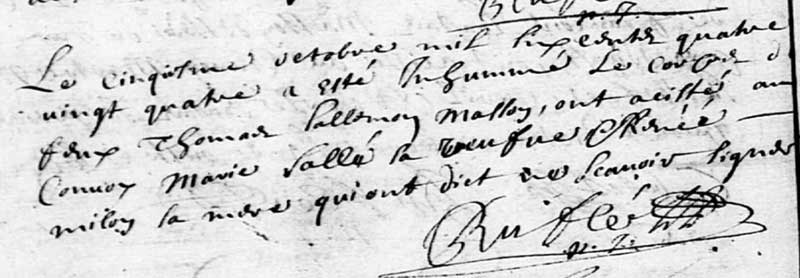 Le cinqiesme octobre mil six cents quatre
vingt quatre a esté Inhummé Le corps d
feux Thomas Lallemon Masson, ont acistés au
Convoy Marie Vallé sa veufve et Renée
milon sa mere qui ont dict ne scavoir signer
Ruflé